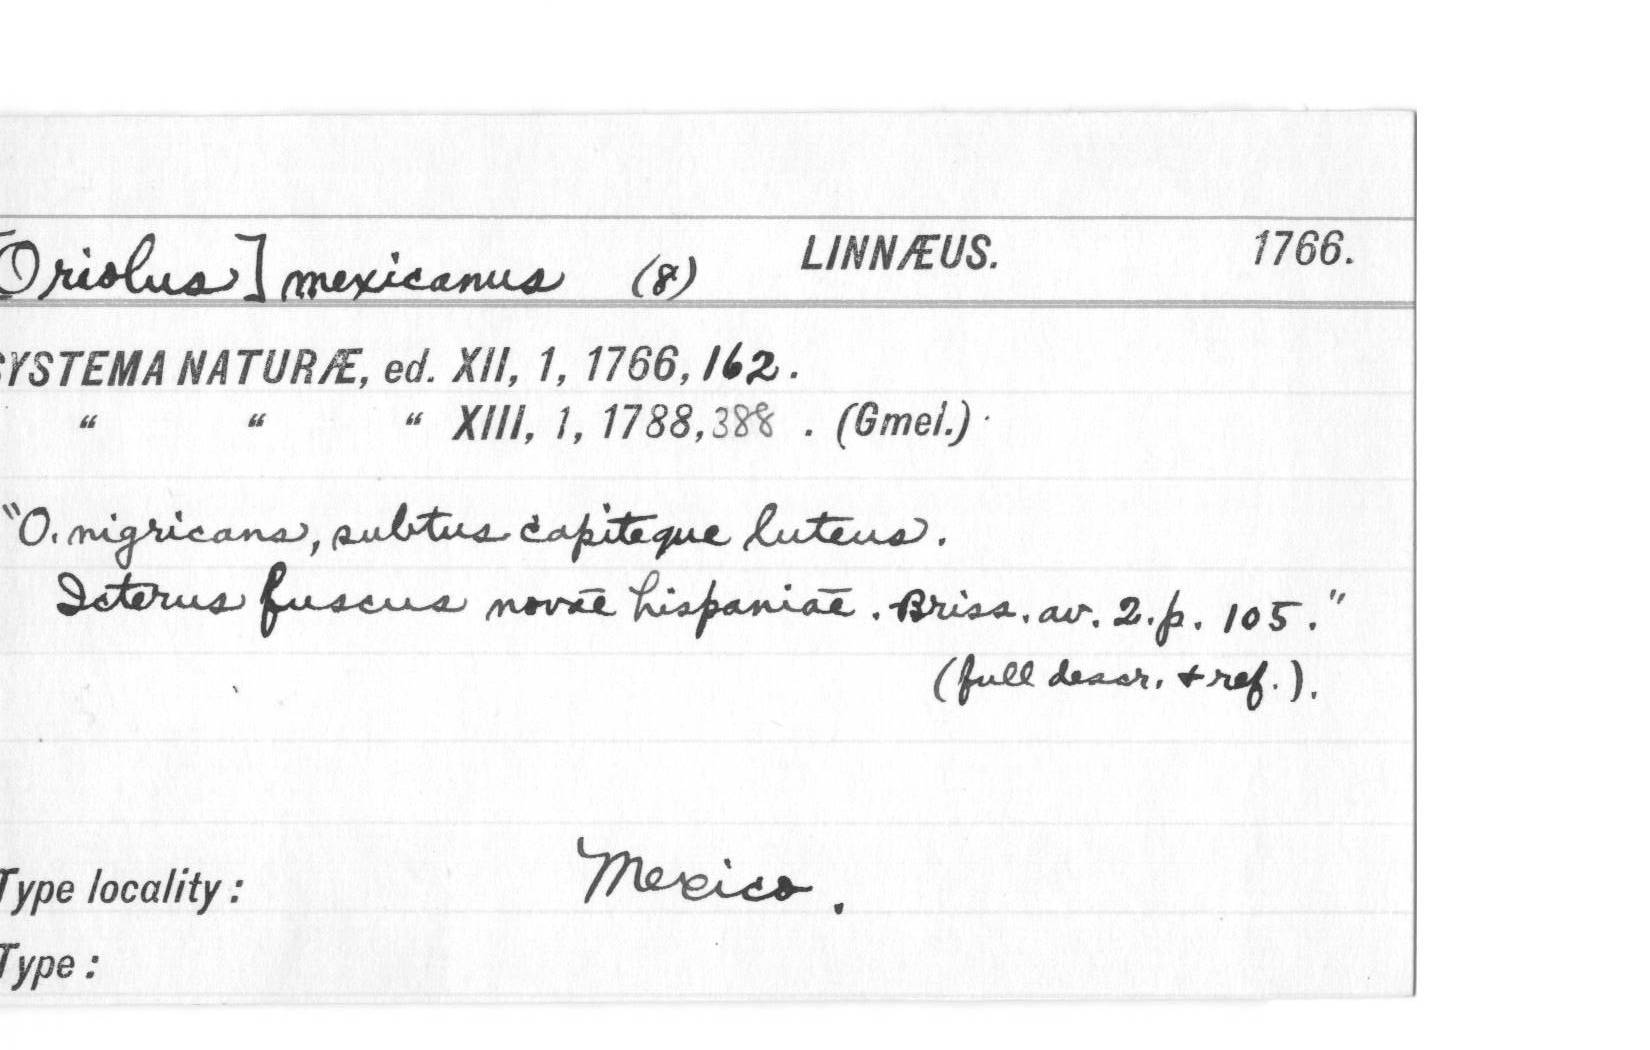 [Oriolus] mexicanus (8) LINNÆUS. 1766.
SYSTEMA NATURÆ, ed. XII, 1, 1766, 162.
“ “ “ XIII, 1, 1788, 388 . (Gmel.)
"O. nigricans, subtus capiteque luteus.
Icterus fuscus novae hispaniae. Briss. av. 2. p. 105."
(full descr. + ref.).
Type locality: Mexico.
Type: